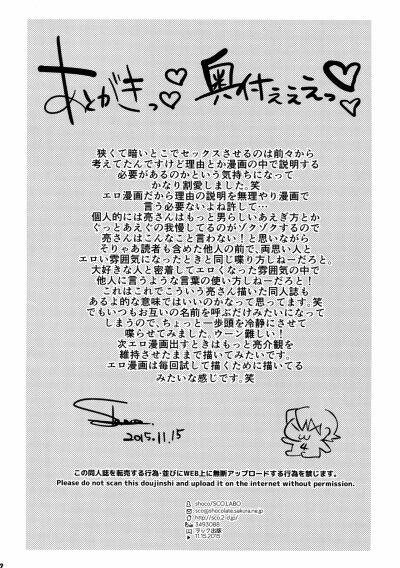 あとがきっ♡奥付えええっ♡
狭くて暗いとこでセックスさせるのは前々から
考えてたんですけど理由とか漫画の中で説明する
必要があるのかという気持ちになって
かなり割愛しました。笑
エロ漫画だから理由の説明を無理やり漫画で
言う必要ないよね許して…
個人的には亮さんはもっと男らしいあえぎ方とか
ぐっとあえぐの我慢してるのがゾクゾクするので
亮さんはこんなこと言わない！と思いながら
そりゃあ読者も含めた他人の前で、両思い人と
エロい雰囲気になったときと同じ喋り方しねーだろと。
大好きな人と密着してエロくなった雰囲気の中で
他人に言うような言葉の使い方しねーだろと！
これはこれでこういう亮さん描いた同人誌も
あるよ的な意味ではいいのかなって思ってます。笑
でもいつもお互いの名前を呼ぶだけみたいになって
しまうので、ちょっと一歩頭を冷静にさせて
喋らせてみました。ウーン難しい！
次エロ漫画出すときはもっと亮介観を
維持させたままで描いてみたいです。
エロ漫画は毎回試して描くために描いてる
みたいな感じです。笑
2015.11.15
この同人誌を転売する行為・並びにWEB上に無断アップロードする行為を禁じます。
Please do not scan this doujinshi and upload it on the internet without permission.
shoco/SCO.LABO
sco@shocolate.sakura.ne.jp
http://sco.2-d.jp/
3493088
ラック出版
11.15.2015